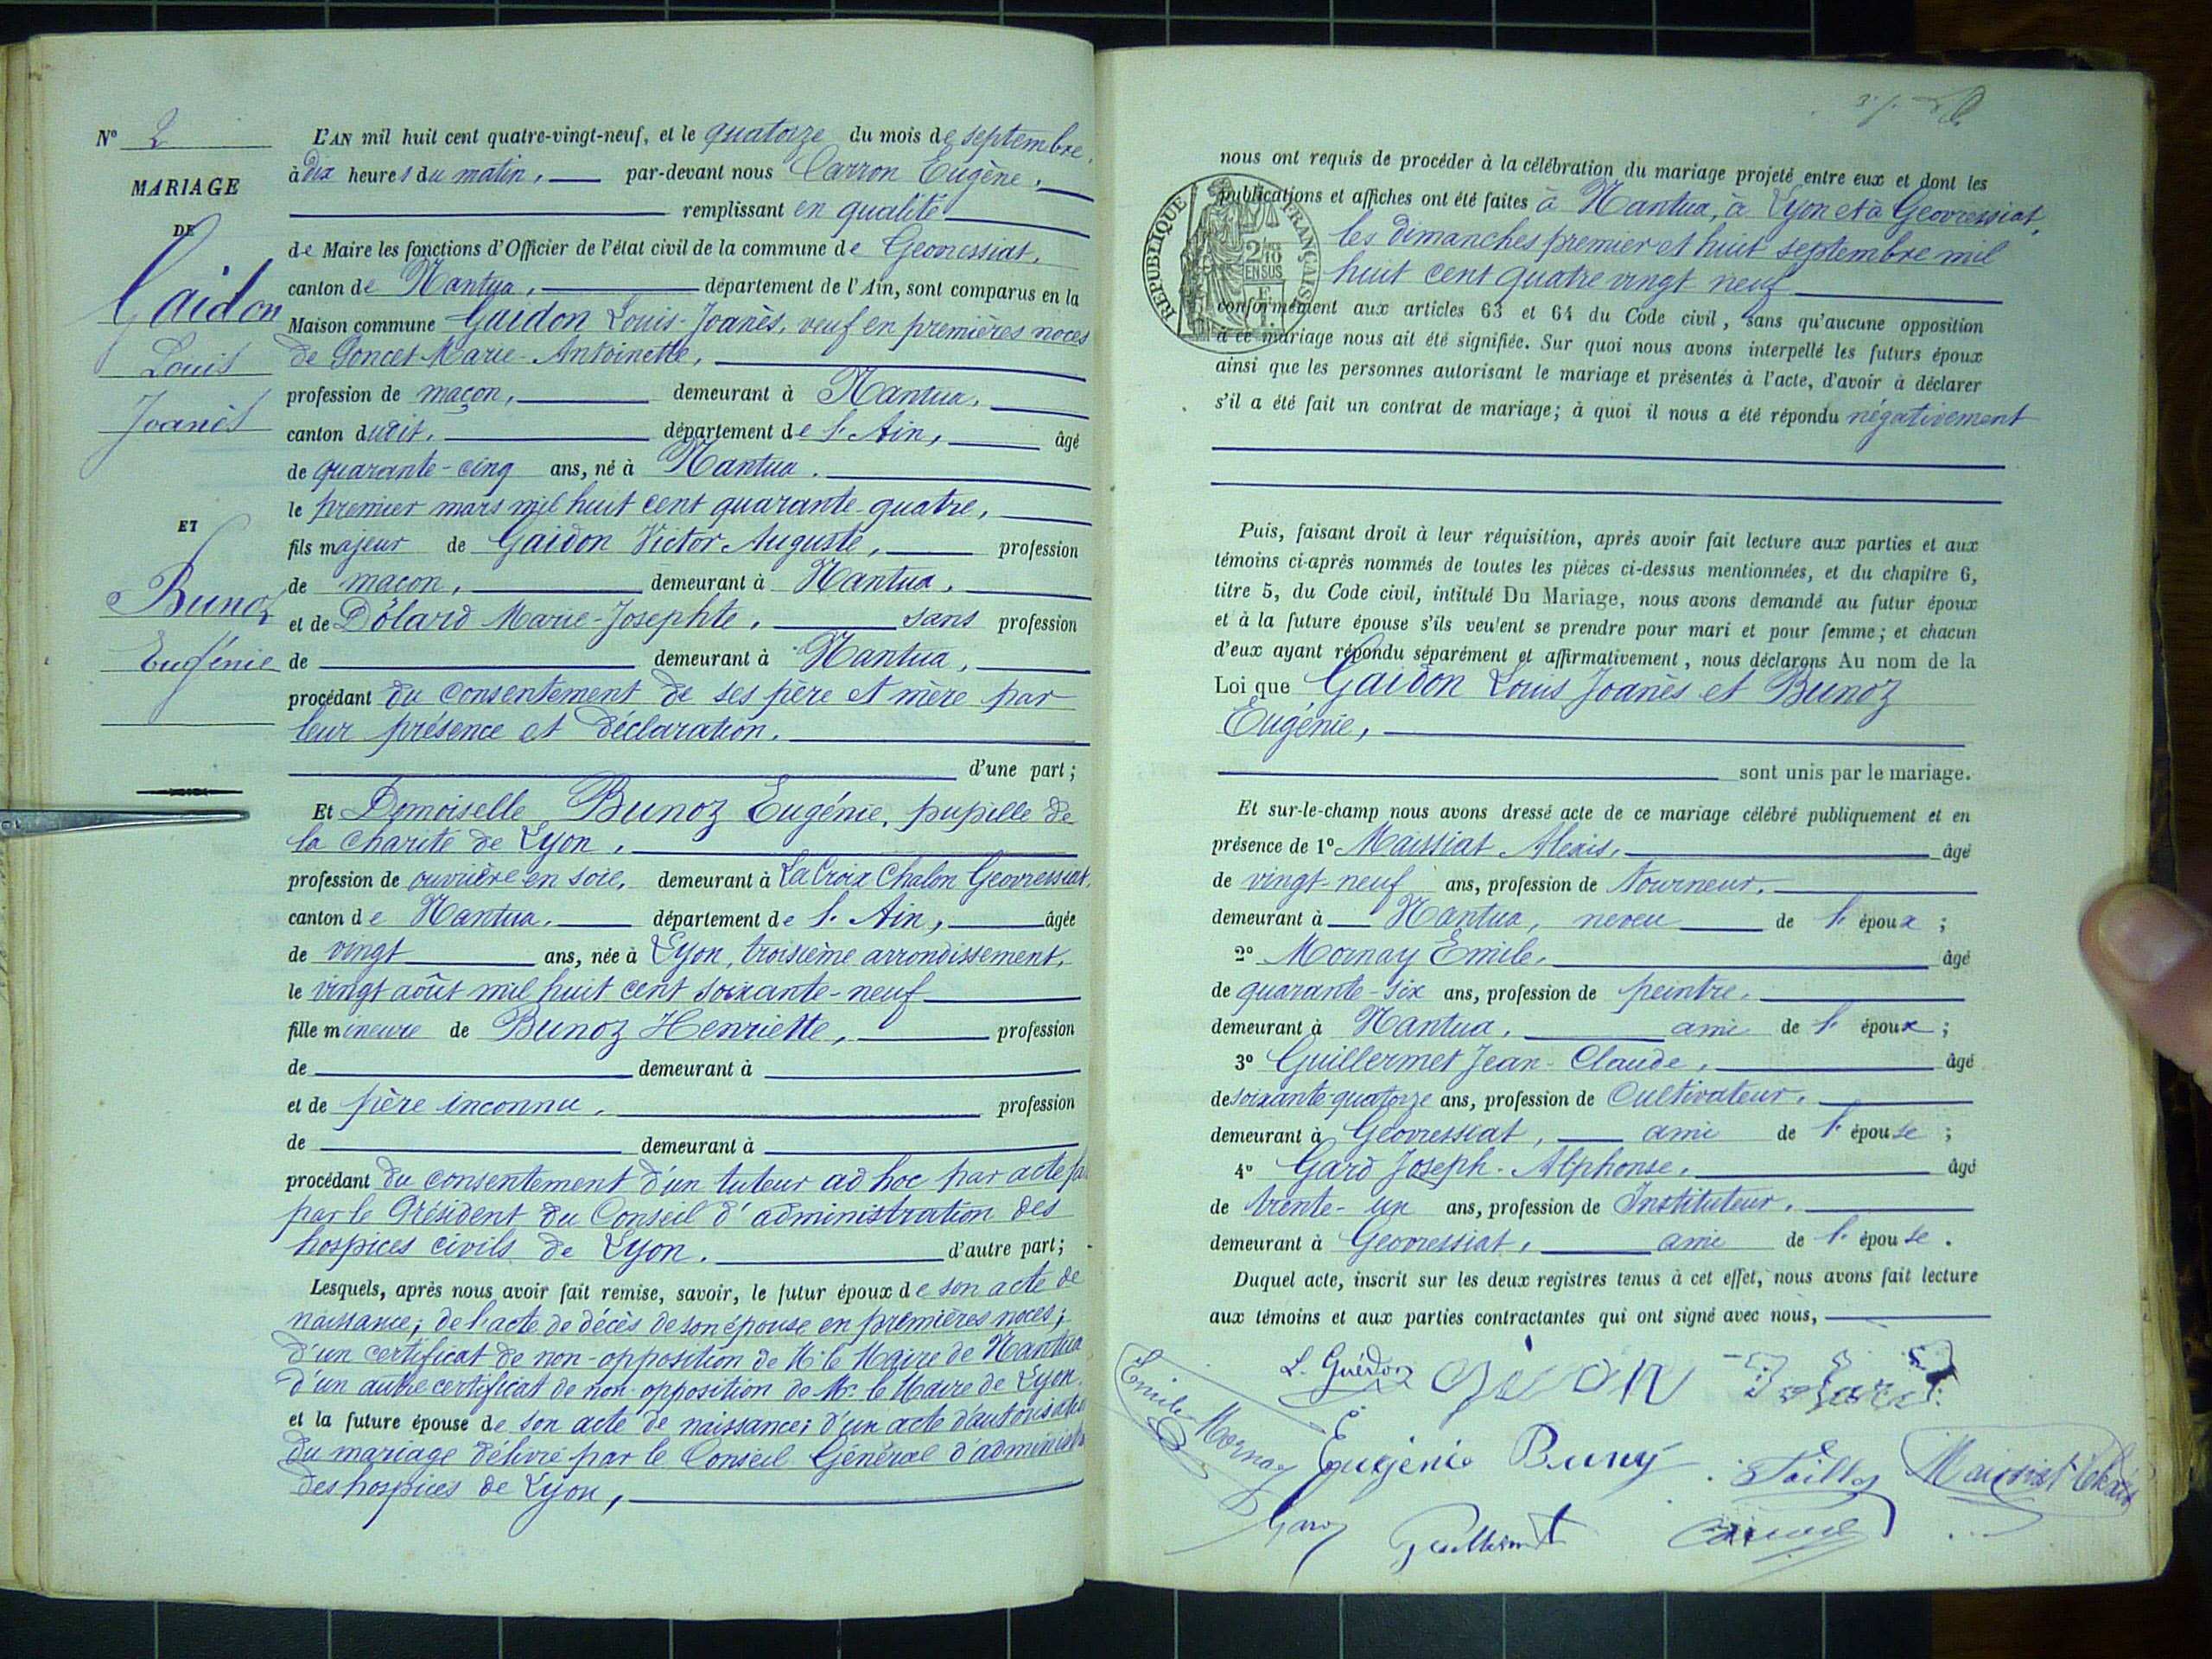 N° 2
MARIAGE
DE
Gaidon
Louis
Joanès
ET
Bunoz
Eugénie
L'AN mil huit cent quatre-vingt-neuf, et le quatorze du mois de septembre,
à dix heures du matin, par-devant nous Carron Eugène,
remplissant en qualité
de Maire les fonctions d'Officier de l'état civil de la commune de Geovressiat,
canton de Nantua, département de l'Ain, sont comparus en la
Maison commune Gaidon Louis-Joanès, veuf en premières noces
de Poncet Marie-Antoinette,
profession de maçon, demeurant à Nantua,
canton dudit, département de l'Ain, âgé
de quarante-cinq ans, né à Nantua.
le premier mars mil huit cent quarante-quatre,
fils majeur de Gaidon Victor Auguste, profession
de maçon, demeurant à Nantua,
et de Dolard Marie-Josephte, sans profession
de demeurant à Nantua,
procédant du consentement de ses père et mère par
leur présence et déclaration.
d'une part;
Et Demoiselle Bunoz Eugénie, pupille de
la charité de Lyon,
profession de ouvrière en soie, demeurant à La Croix Chalon Geovressiat,
canton de Nantua, département de l'Ain, âgée
de vingt ans, née à Lyon, troisième arrondissement,
le vingt août mil huit cent soixante-neuf
fille mineure de Bunoz Henriette, profession
de demeurant à
et de père inconnu, profession
de demeurant à
procédant du consentement d'un tuteur ad hoc par acte
par le Président du Conseil d'administration des
hospices civils de Lyon. d'autre part;
Lesquels, après nous avoir fait remise, savoir, le futur époux de son acte de
naissance; de l'acte de décès de son épouse en premières noces;
d'un certificat de non-opposition de Mr le Maire de Nantua
d'un autre certificat de non-opposition de Mr le Maire de Lyon.
et la future épouse de son acte de naissance; d'un acte d'autorisation
du mariage délivré par le Conseil Général d'administ
des hospices de Lyon,
RÉPUBLIQUE FRANÇAISE
2/10
EN SUS
nous ont requis de procéder à la célébration du mariage projeté entre eux et dont les
publications et affiches ont été faites à Nantua, à Lyon et à Geovressiat,
les dimanches premier et huit septembre mil
huit cent quatre vingt neuf
conformément aux articles 63 et 64 du Code civil, sans qu'aucune opposition
à ce mariage nous ait été signifiée. Sur quoi nous avons interpellé les futurs époux
ainsi que les personnes autorisant le mariage et présentés à l'acte, d'avoir à déclarer
s'il a été fait un contrat de mariage; à quoi il nous a été répondu négativement
Puis, faisant droit à leur réquisition, après avoir fait lecture aux parties et aux
témoins ci-après nommés de toutes les pièces ci-dessus mentionnées, et du chapitre 6,
titre 5, du Code civil, intitulé Du Mariage, nous avons demandé au futur époux
et à la future épouse s'ils veulent se prendre pour mari et pour femme; et chacun
d'eux ayant répondu séparément et affirmativement, nous déclarons Au nom de la
Loi que Gaidon Louis Joanès et Bunoz
Eugénie,
sont unis par le mariage.
Et sur-le-champ nous avons dressé acte de ce mariage célébré publiquement et en
présence de 1° Maissiat Alexis, âgé
de vingt-neuf ans, profession de tourneur,
demeurant à Nantua, neveu de l'époux;
2° Mornay Emile, âgé
de quarante-six ans, profession de peintre,
demeurant à Nantua, ami de l'époux;
3° Guillermet Jean-Claude, âgé
de soixante-quatorze ans, profession de Cultivateur,
demeurant à Geovressiat, ami de l'épouse;
4° Gard Joseph-Alphonse, âgé
de trente-un ans, profession de Instituteur,
demeurant à Geovressiat, ami de l'épouse.
Duquel acte, inscrit sur les deux registres tenus à cet effet, nous avons fait lecture
aux témoins et aux parties contractantes qui ont signé avec nous,
L. Guédon
Emile Mornay Eugénie Buny Maissiat Alexis
Gard Guillermet